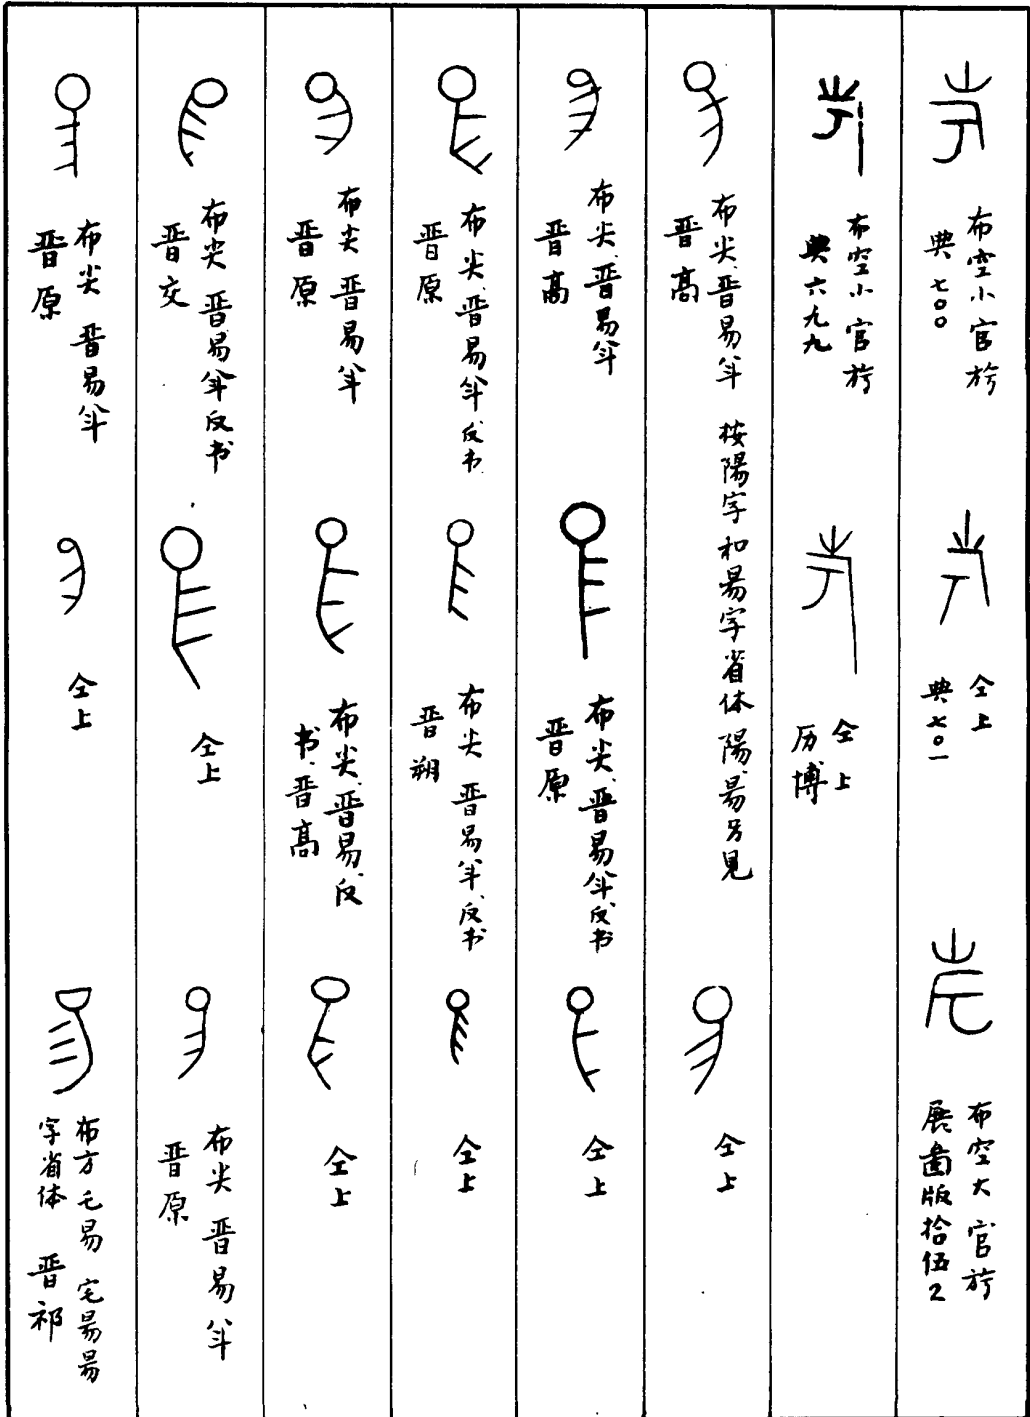 布空小官㝬
典七〇〇
仝上
典七〇一
布空大官㝬
展啚版拾伍2
布空小官㝬
典六九九
仝上
历博
布尖晋昜半 按陽字和昜字省体陽昜另見
晋高
仝上
布尖晋昜半
晋高
布尖晋昜半反书
晋原
仝上
布尖晋昜半反书
晋原
布尖晋昜半反书
晋朔
仝上
布尖晋昜半
晋原
布尖晋昜反
书晋高
仝上
布尖晋昜半反书
晋交
仝上
布尖晋昜半
晋原
布尖晋昜半
晋原
仝上
布方乇昜 宅昜昜
字省体 晋祁